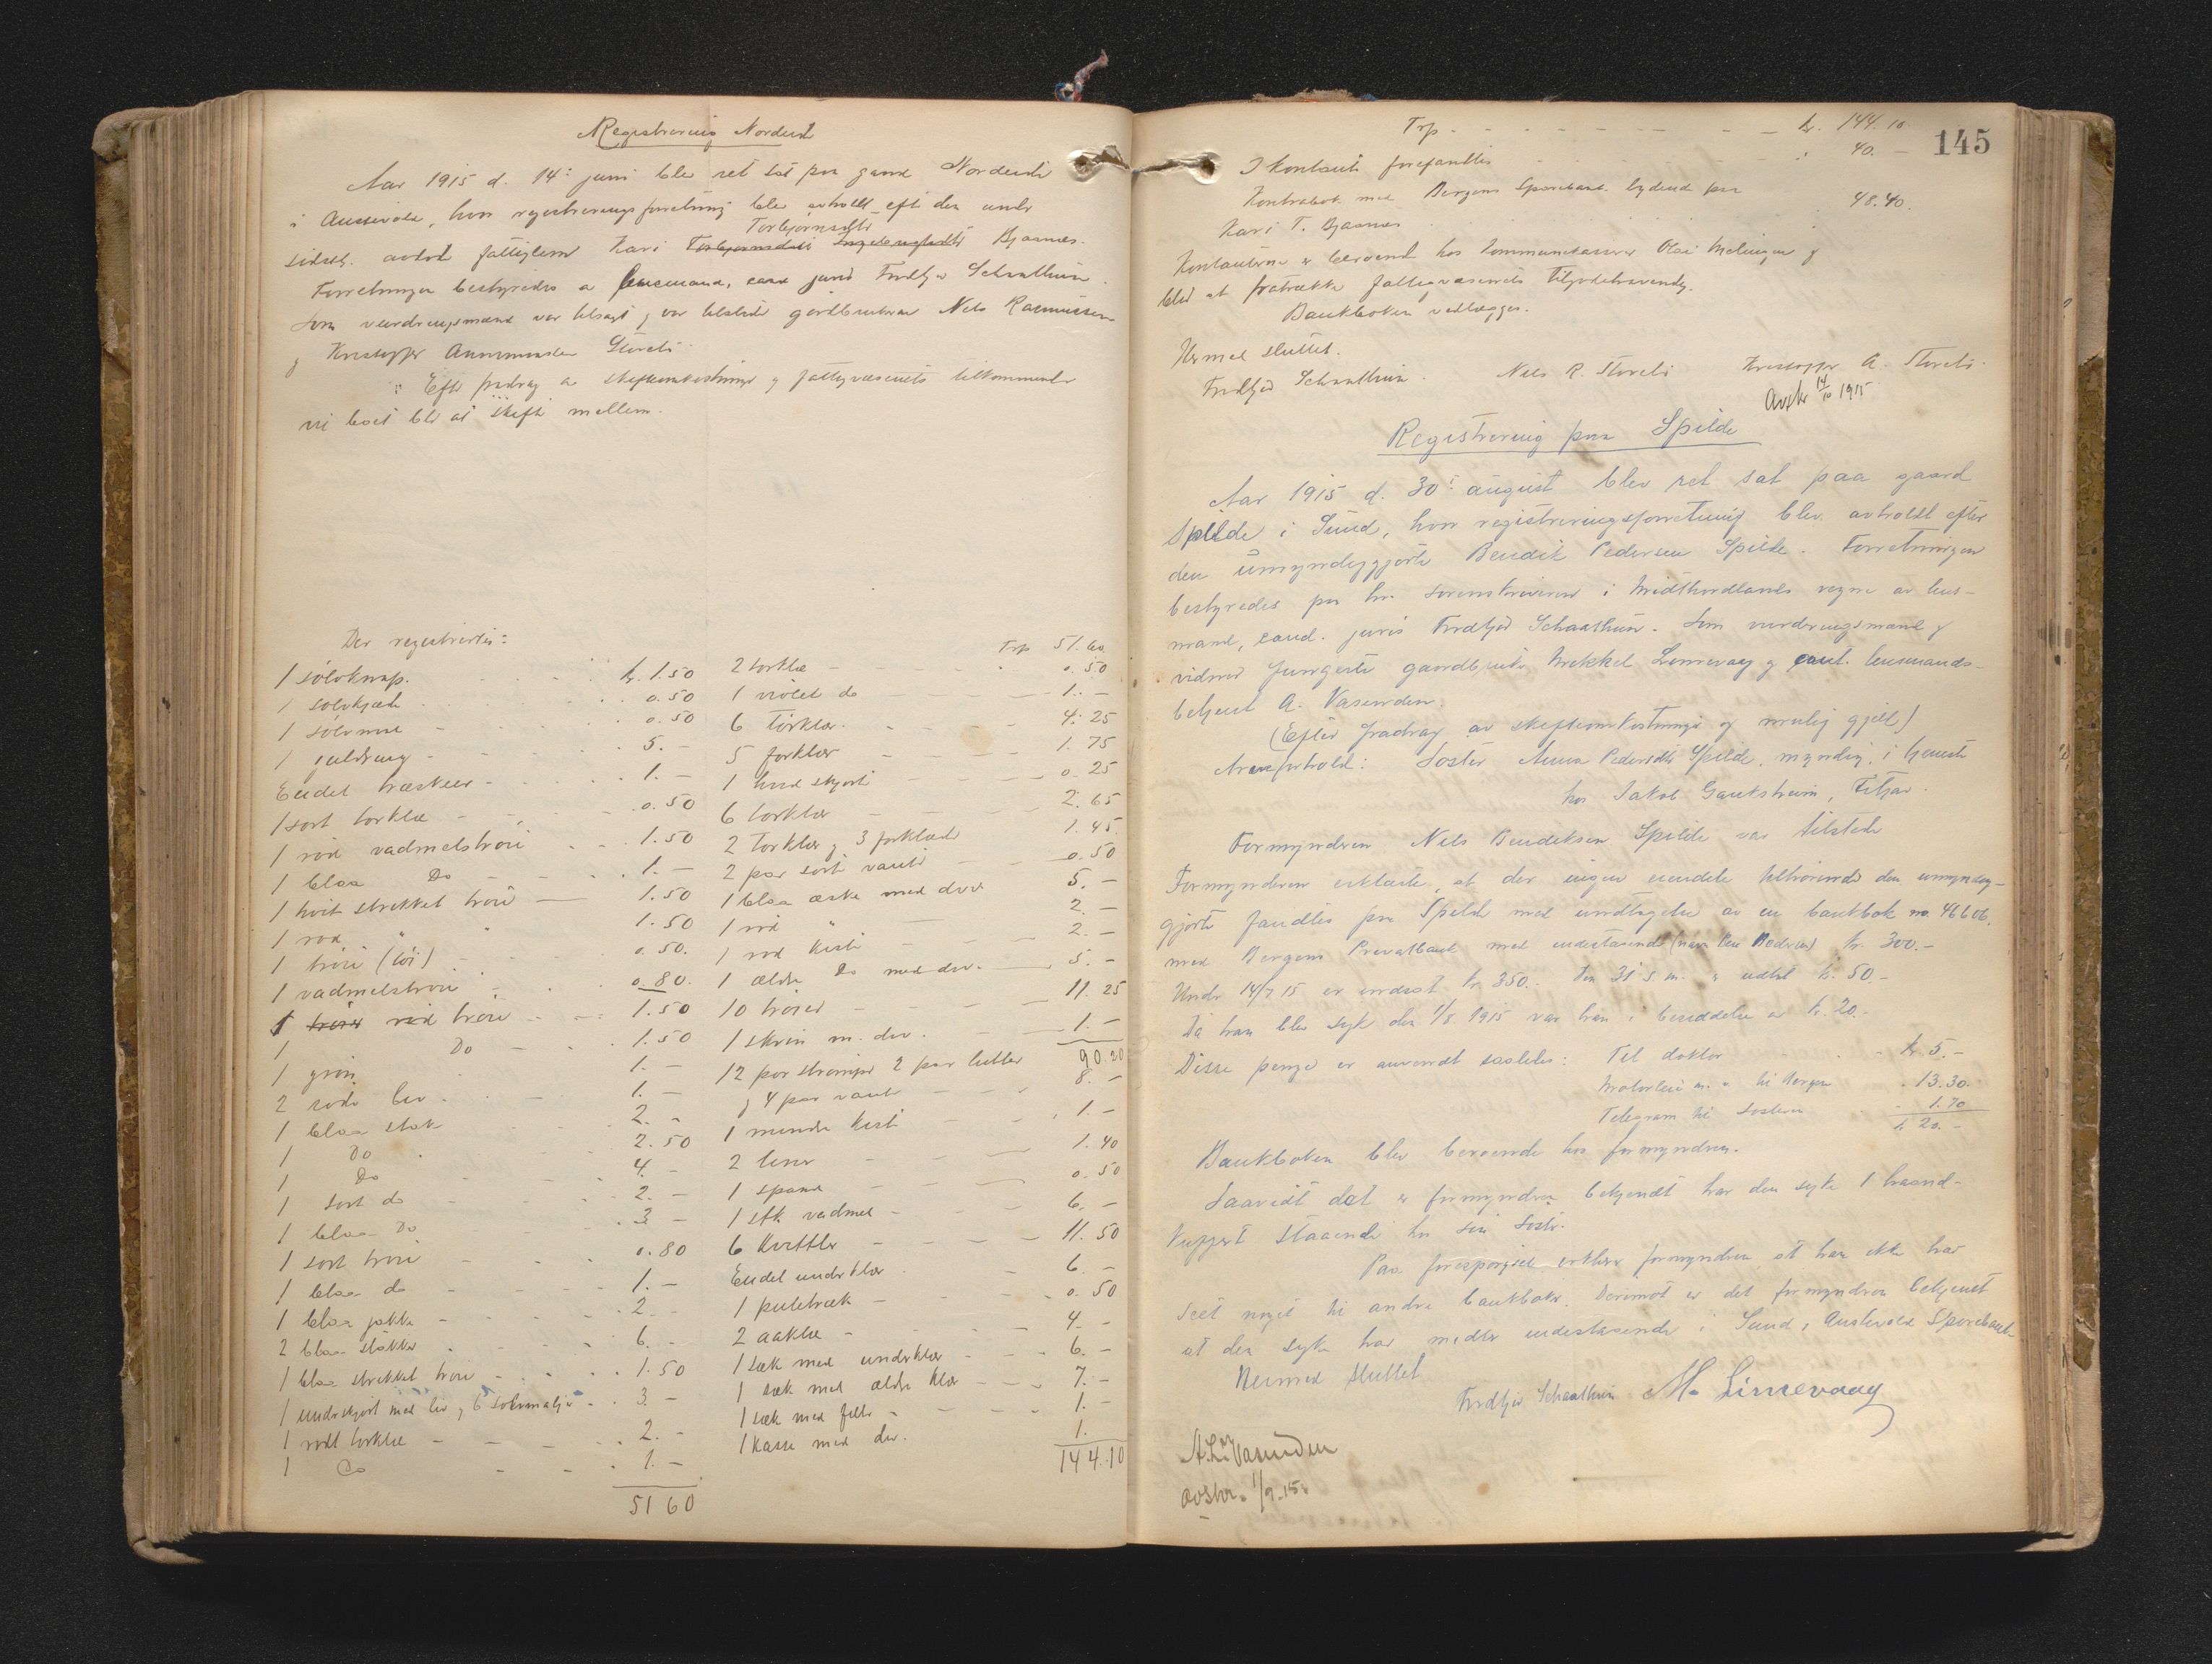 Registrering Nordeid
Aar 1915 d. 14: juni blev ret sat paa gaard Nordeide
i Austevold, hvor registreringsforretning blev avholdt efter den under
Torbjørnsdtr
sidstl. avdød fattiglem Kari Bjaanes.
Forretningen bestyredes av lensmand, cand juris Fredtjov Schaathun.
Som vurderingsmænd var tilsagt og var tilstede gårdbrukerne Nils Rasmussen
og Kristoffer Storebø.
Efter fradrag av skifteomkostninger og fattigvæsenets tilkommende
vil boet bli at skifte mellem.
Der registrertes:
1 sølvknap. kr. 1.50
1 sølvkjæde 0.50
1 0.50
1 guldring 5.-
Endel træskeer 1.-
1 sort tørklæ 0.50
1 rød vadmelstrøie 1.50
1 blaa Do 1.-
1 hvit strikket trøie 1.50
1 rød " " 1.50
1 trøie (tøi) 0.50.
1 vadmelstrøie 0.80.
1 rød trøie 1.50
1 Do 1.50
1 grøn 1.-
2 røde liv 1.-
1 blaa stak 2.-
1 Do 2.50
1 Do 4.-
1 sort do 2.-
1 blaa Do 3.-
1 sort trøie 0.80
1 blaa do 1.-
1 blaa jakke 2.-
2 blaa stakker 6.-
1 blaa strikket trøie 1.50
1 underskjørt med liv og 6 sølvmalje 3.-
1 rødt tørklæ 2.-
1 Do 1.-
51 60
Trp 51.60
2 tørklæ 0.50
1 violet do 1.-
6 tørklær. 4.25
5 forklær 1.75
1 hvid skjorte 0.25
6 tørklær 2.65
2 tørklær og 3 forklæder 1.45.
2 par sorte vanter 0.50
1 blaa æske med div. 5.-
1 rød " 2.-
1 rød kiste 2.-
1 ældre do med div. 5.-
10 trøier 11.25
1 skrin m. div. 1.-
90.20
12 par strømper 2 par lester
og 4 par vanter 8.-
1 mindre kiste 1.-
2 liner 1.40
1 spand 0.50
1 stk vadmel 6.-
6 kvittler 11.50
Endel underklær 6.-
1 putetræk 0.50
2 aaklæ 4.-
1 sæk med underklær 6.-
1 sæk med ældre klær 7.-
1 sæk med filler 1.-
1 kasse med div. 1.
144.10
145
Trp kr. 144.10
I kontanter forefantes 40.-
Kontrabok med Bergens Sparebank lydende paa
Kari T. Bjaanes 48.40.
Kontanterne er beroende hos kommunekasserer Olai Melingen og
blir at fratrække fattigvæsenets tilgodehavende.
Bankboken vedlægges.
Hermed sluttet.
Fredtjov Schaathun. Nils R. Storebø Kristoffer A. Storebø.
Avskr 14/10 1915
Registrering paa Spilde
Aar 1915 d. 30: august blev ret sat paa gaard
Spilde i Sund, hvor registreringsforretning blev avholdt efter
den umyndiggjorte Bendik Pedersen Spilde. Forretningen
bestyredes paa hr. sorenskriveren i Midthordlands vegne av lens-
mand, cand. juris Fredtjov Schaathun. Som vurderingsmænd og
vidner fungerte gaardbruker Mikkel Linnevaag og const. lensmands-
betjent A. Vasenden.
(Efter fradrag av skifteomkostninger og mulig gjeld)
Arveforhold: Søster Anna Pedersdtr Spilde, myndig, i tjeneste
hos Jakob Gauksheim, Fitjar.
Formynderen Nils Bendiksen Spilde var tilstede
Formynderen erklærte, at der ingen eiendele tilhørende den umyndig-
gjorte fandtes paa Spilde med undtagelse av en bankbok no. 46606.
med Bergens Privatbank med indestaaende kr. 300.-
Under 14/7 15 er indsat kr. 350.- Den 31 s.m. er uttat kr. 50.-
Da han blev syk den 1/8 1915 var han i besiddelse av kr. 20.-
Disse penge er anvendt saaledes: Til doktor kr 5.-
Motorleie m.v. til Bergen 13.30.
Telegram til søsteren 1.70
kr 20.-
Bankboken blev beroende hos formynderen.
Saavidt det er formynderen bekjendt har den syke 1 haand-
kuffert staaende hos sin søster.
Paa forespørgsel erklærer formynderen at han ikke har
seet noget til andre bankbøker. Derimot er det formynderen bekjendt
at den syke har midler indestaaende i Sund & Austevold Sparebank
Hermed sluttet
Fredtjov Schaathun M. Linnevaag
A. L. Vasenden
avskr. 1/9.15.